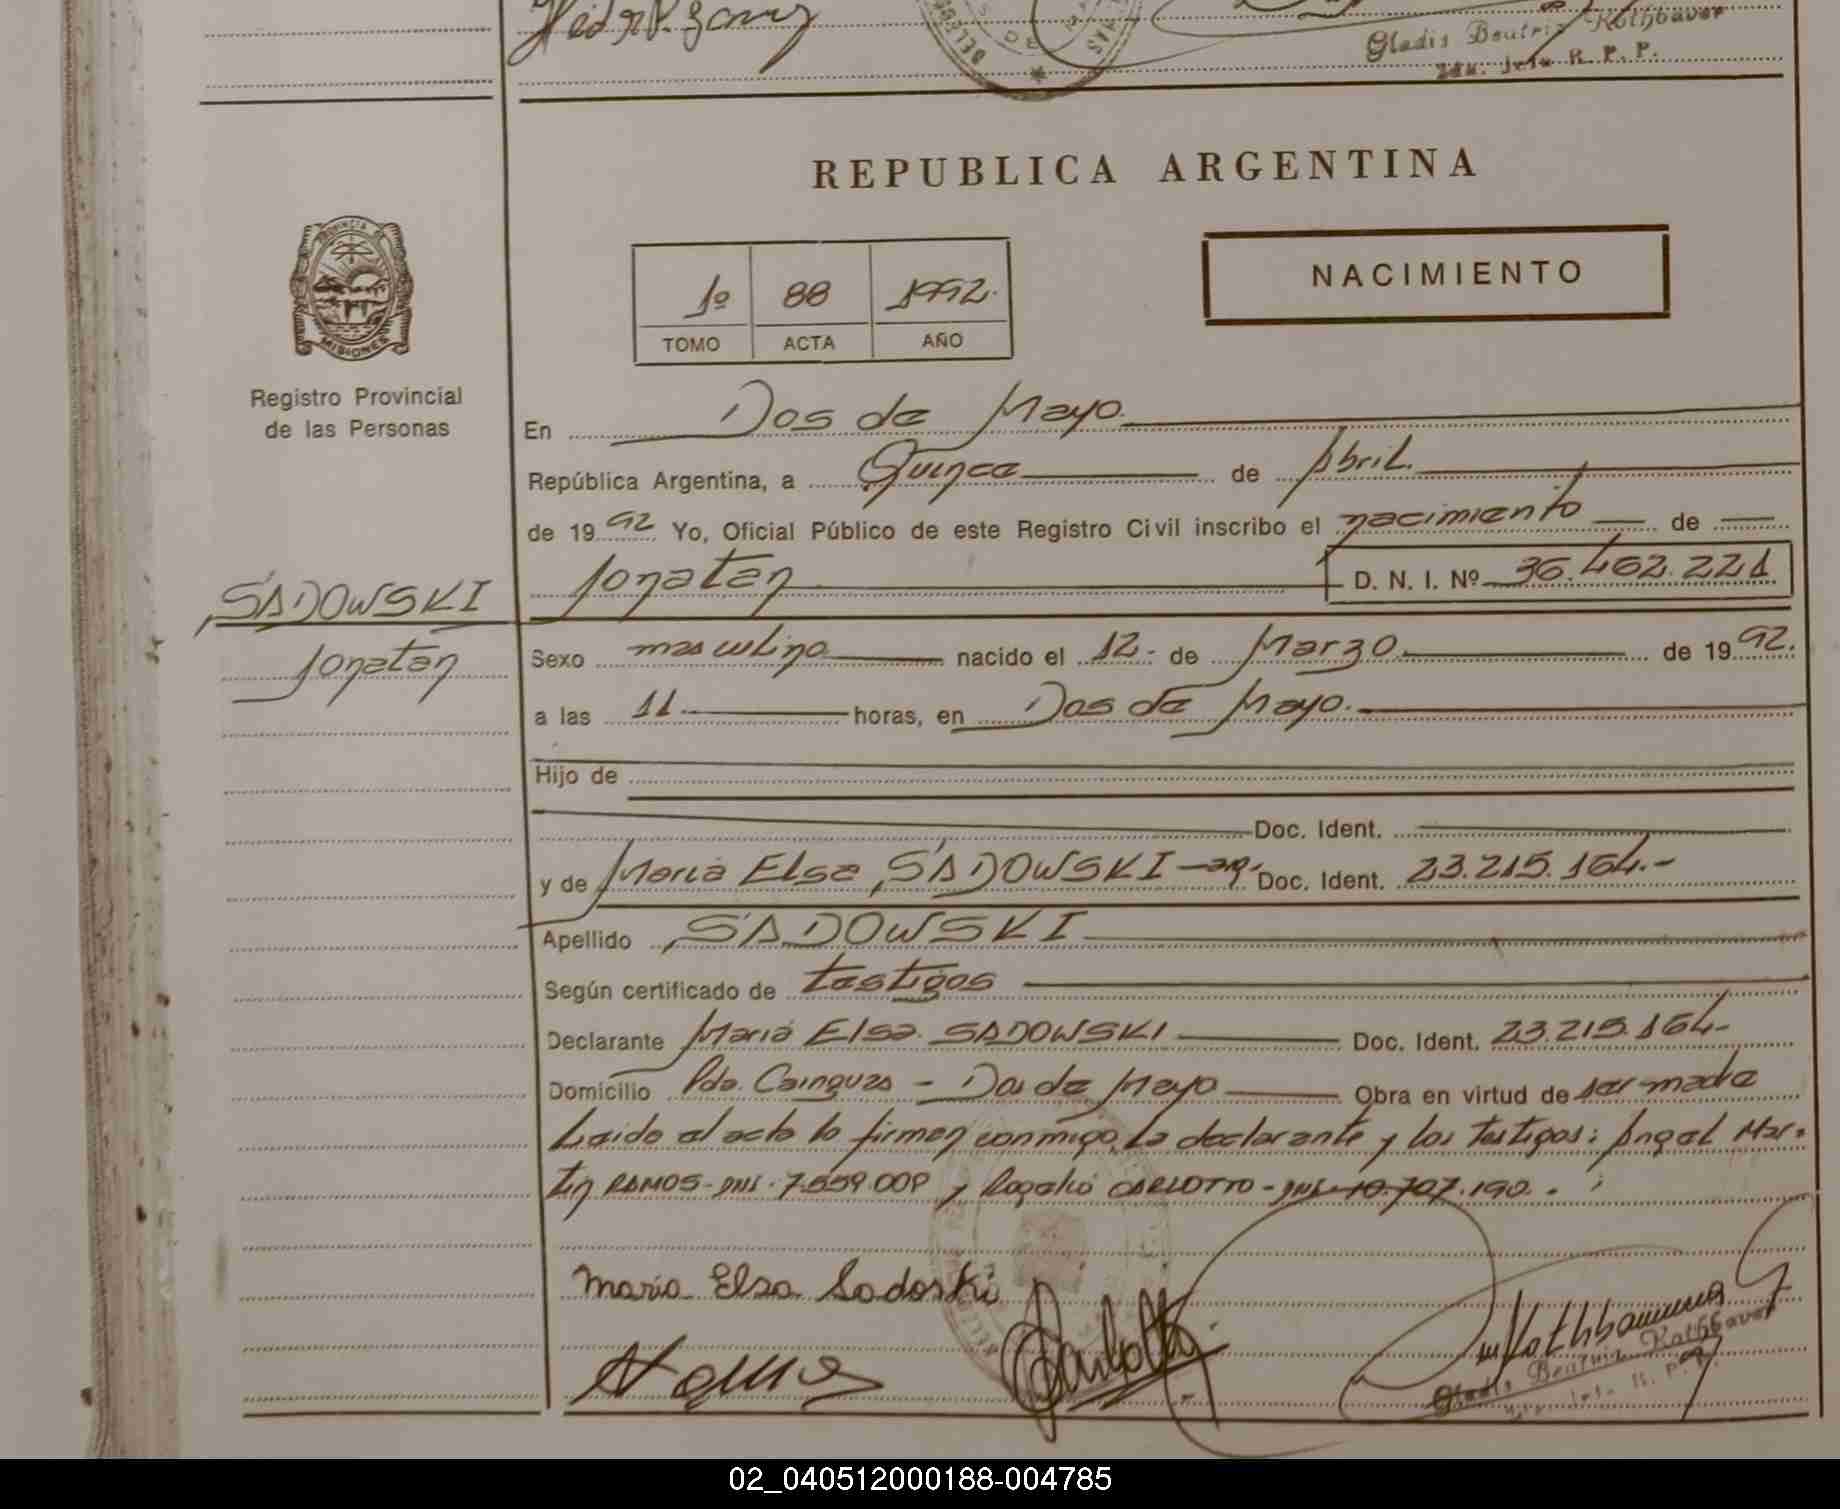 Gladis Beatriz Rothbaver
R. P. P.
REPUBLICA ARGENTINA
PROVINCIA DE
MISIONES
Registro Provincial
de las Personas
NACIMIENTO
1º 88 1992.
TOMO ACTA AÑO
En Dos de Mayo.
República Argentina, a Quince de Abril.
de 1992 Yo, Oficial Público de este Registro Civil inscribo el nacimiento de
Jonatan D. N. I. Nº 36.462.221
SADOWSKI
Jonatan
Sexo masculino nacido el 12. de Marzo. de 1992.
a las 11. horas, en Dos de Mayo.
Hijo de
Doc. Ident.
y de Maria Elsa SADOWSKI - arg. Doc. Ident. 23.215.164.-
Apellido SADOWSKI
Según certificado de testigos
Declarante Maria Elsa SADOWSKI Doc. Ident. 23.215.164-
Domicilio Pdo. Cainguas - Dos de Mayo Obra en virtud de ser madre
Leido el acta lo firman conmigo, la declarante y los testigos: Angel Mar-
tin RAMOS - DNI. 7.559.009 y Rogelio CARLOTTO - DNI 10.707.190.
Maria Elsa Sadoski
Gladis Beatriz Rothbaver
02_040512000188-004785